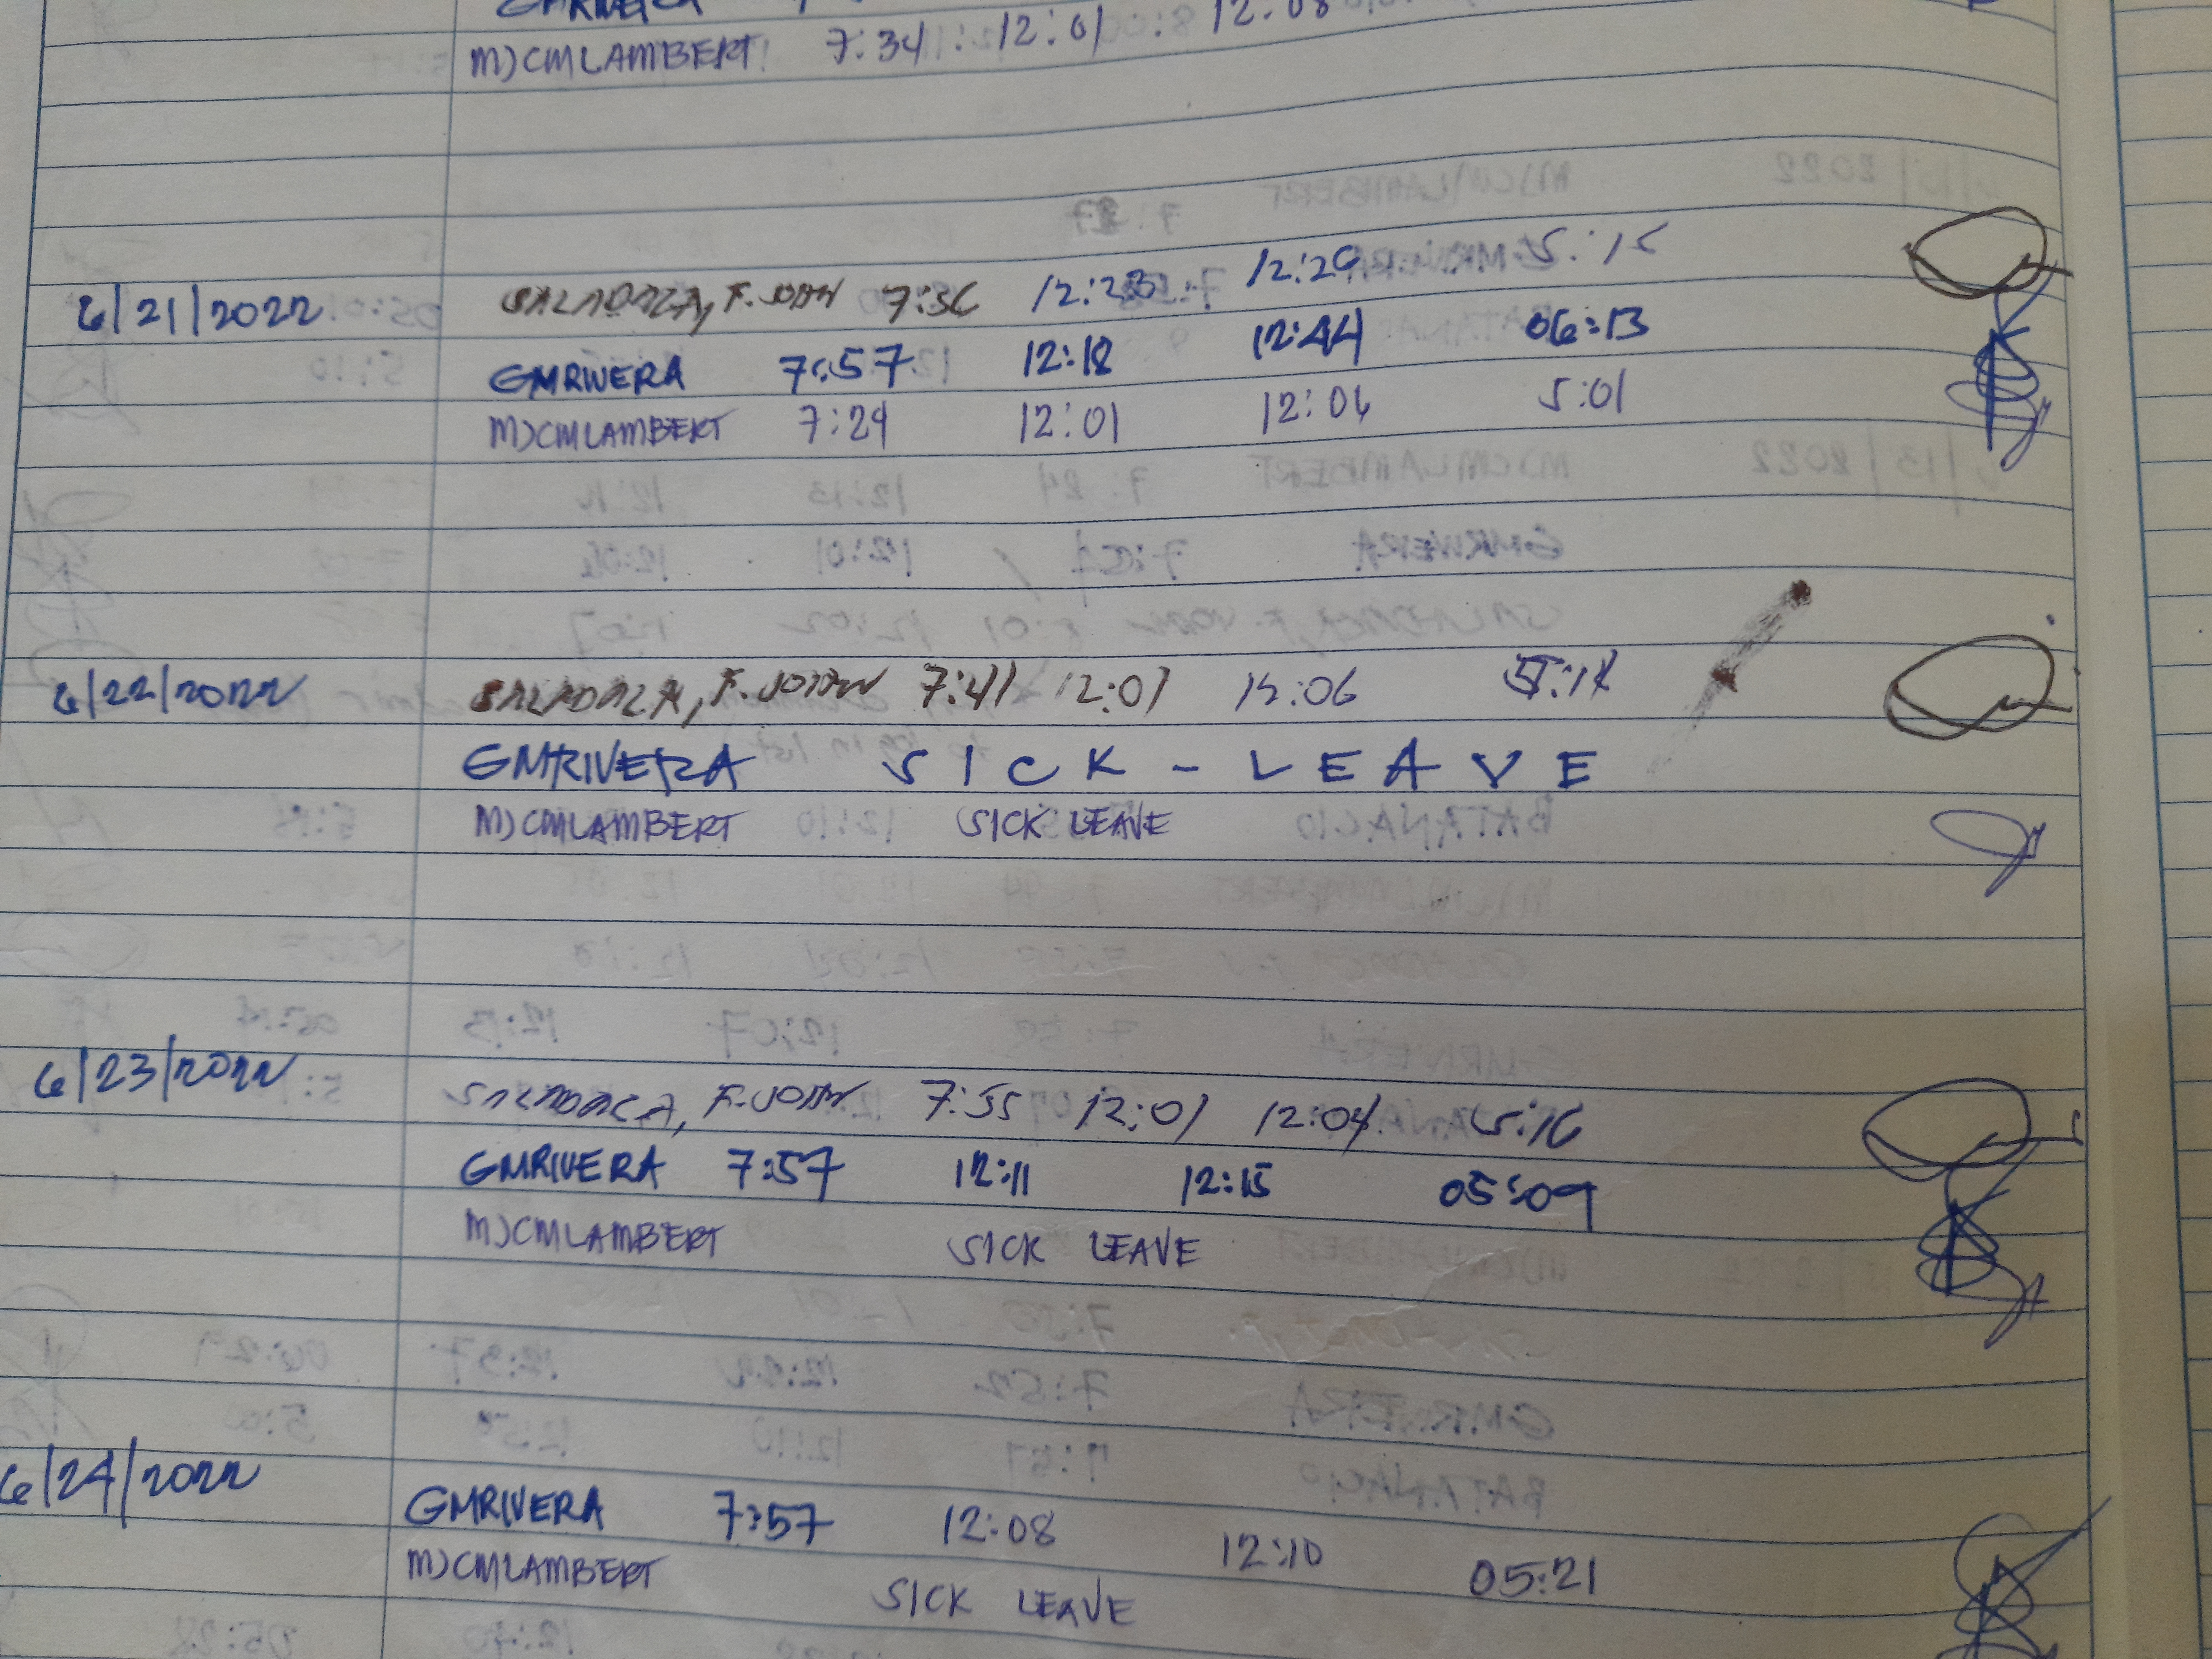 GMRIVERA
MJCMLAMBERT 7:34 12:01 12:08
6/21/2022 F. JOAN 7:56 12:23 12:29 5:15
GMRIVERA 7:57 12:18 12:44 06:13
MJCMLAMBERT 7:29 12:01 12:06 5:01
6/22/2022 F. JOAN 7:41 12:01 12:06
GMRIVERA SICK - LEAVE
MJCMLAMBERT SICK LEAVE
6/23/2022 F. JOAN 7:55 12:01 12:04 5:16
GMRIVERA 7:57 12:11 12:15 05:09
MJCMLAMBERT SICK LEAVE
6/24/2022
GMRIVERA 7:57 12:08 12:10 05:21
MJCMLAMBERT SICK LEAVE